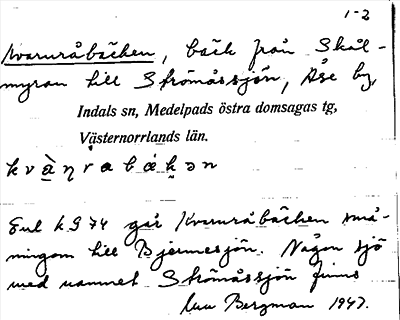 1-2
Kvarnråbäcken, bäck från Skål-
myran till Strömåssjön, Åse by,
Indals sn, Medelpads östra domsagas tg,
Västernorrlands län.
Enl k G 74 går Kvarnråbäcken små-
ningom till Bjermesjön. Någon sjö
med namnet Strömåssjön finns
Bergman 1947.